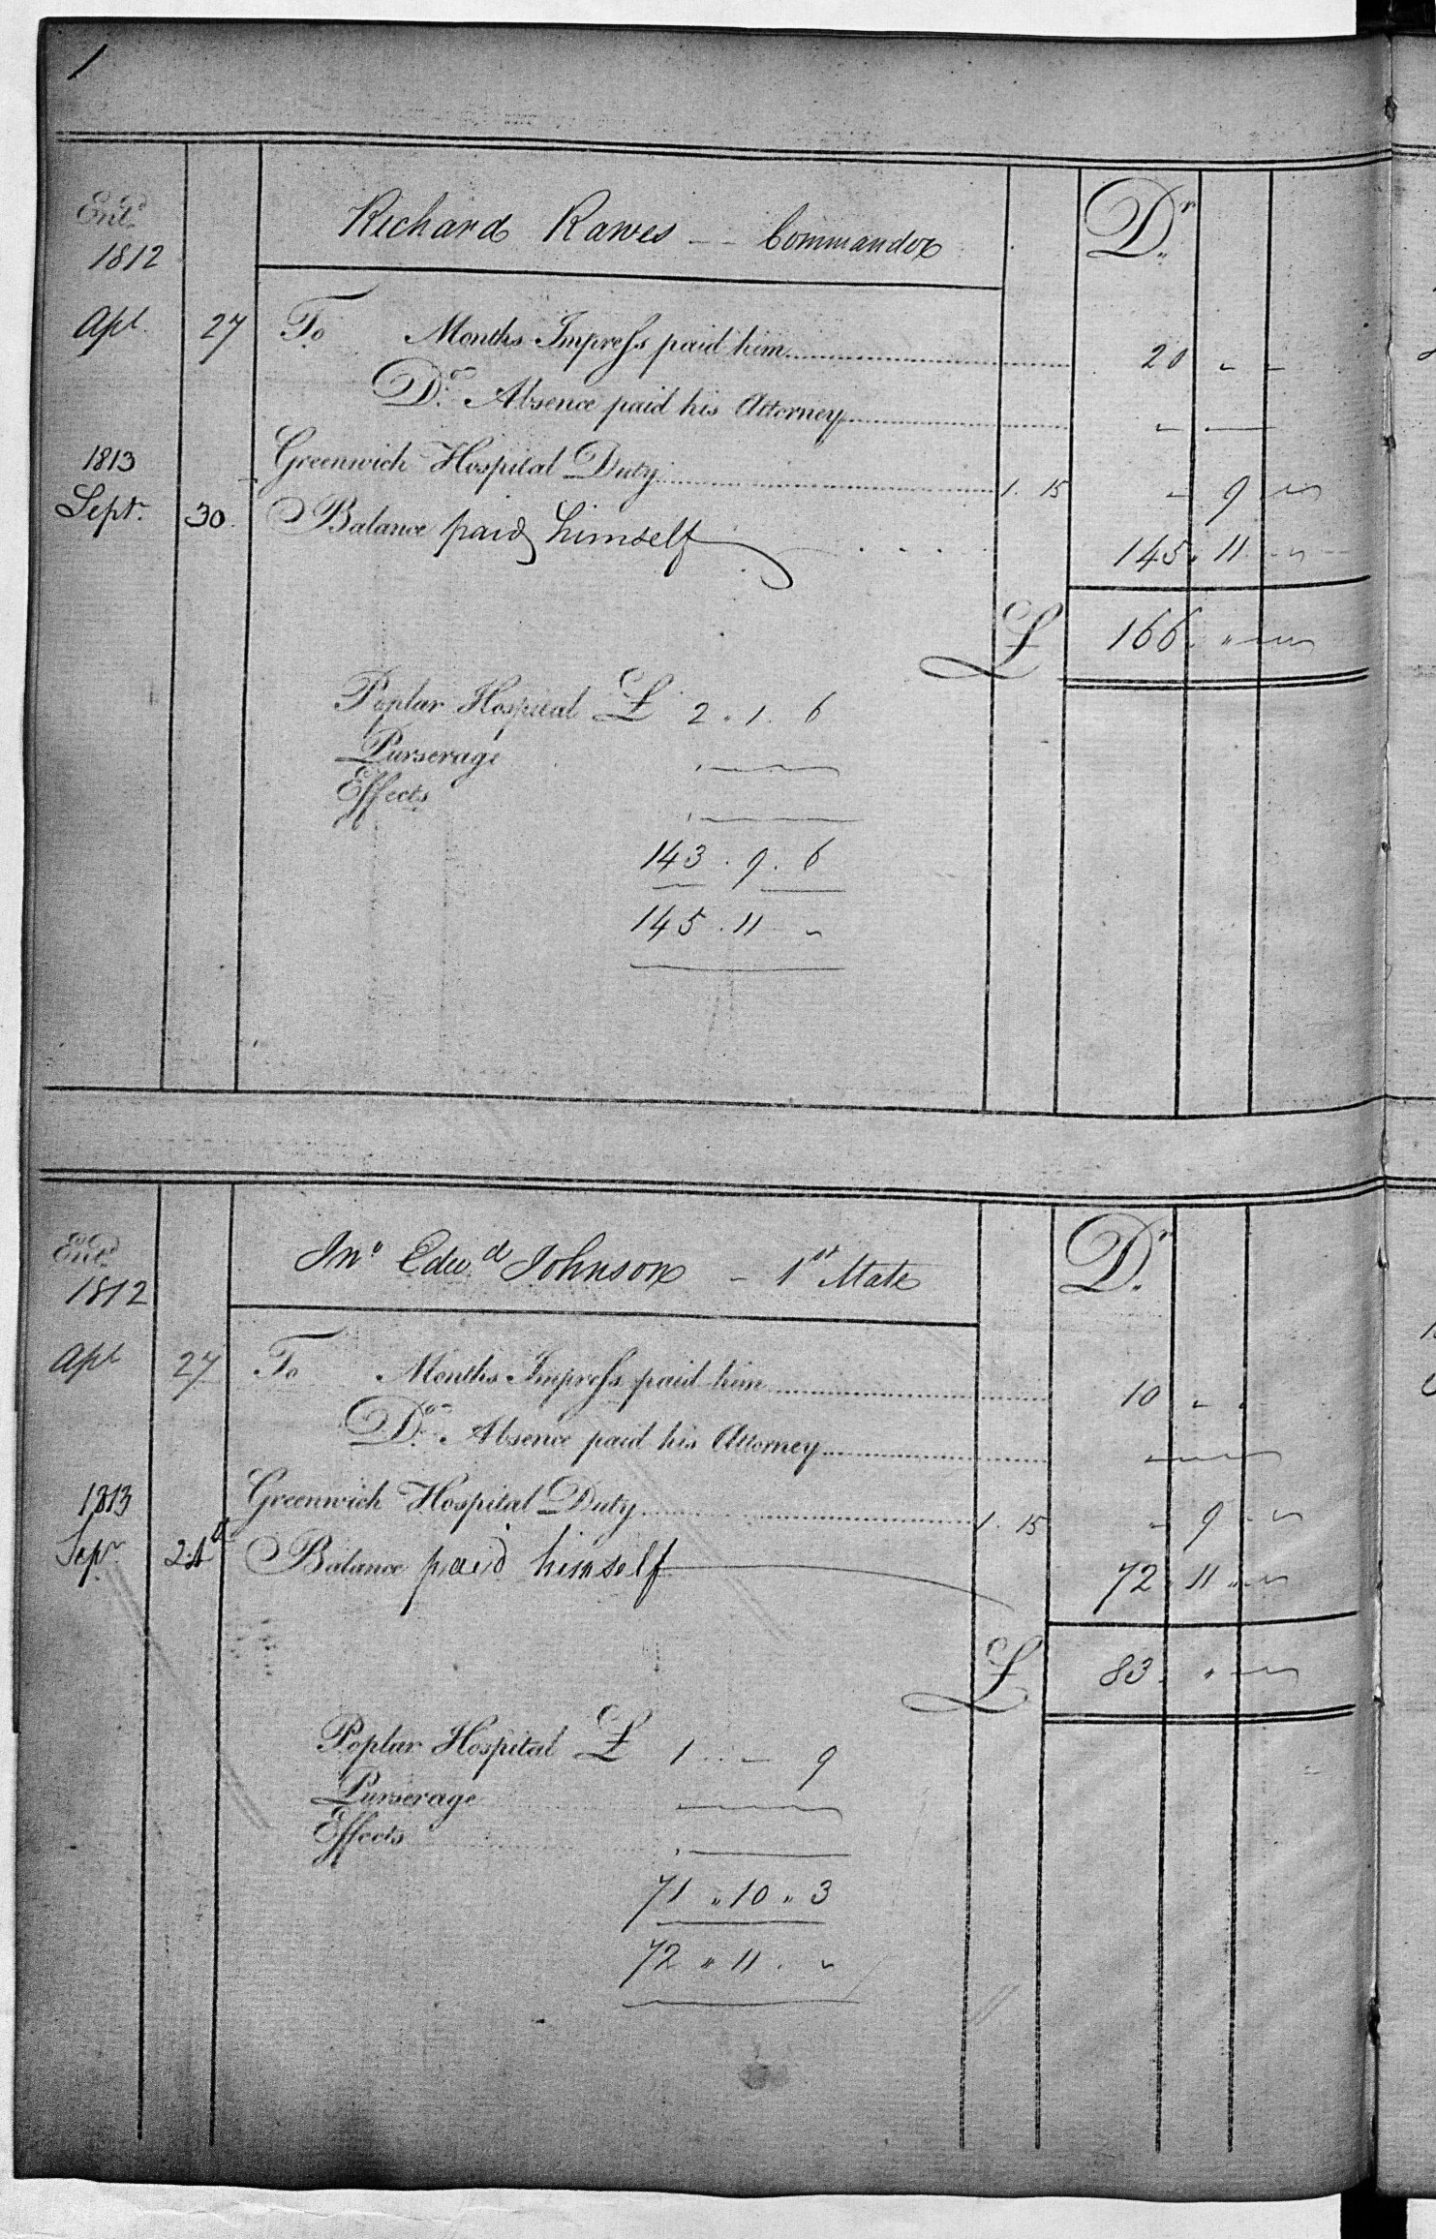 1
Ent.d
1812
Richard Rawes -- Commander
D.r
Apl 27 To Months Impress paid him 20 " "
D.o Absence paid his Attorney " "
1813
Greenwich Hospital Duty 1. 15 " 9 "
Sept.r 30 Balance paid himself 145 " 11 "
£ 166 " "
Poplar Hospital £ 2 . 1 . 6
Purserage
Effects
143 . 9 . 6
145 . 11 "
Ent.d
1812
Jn.o Edw.d Johnson - 1st Mate
D.r
Apl 27 To Months Impress paid him 10 " "
D.o Absence paid his Attorney
1813
Greenwich Hospital Duty 1. 15 " 9 "
Sep.r 24 Balance paid himself 72 " 11 "
£ 83 " "
Poplar Hospital £ 1 " - 9
Purserage
Effects
71 " 10 " 3
72 " 11 "